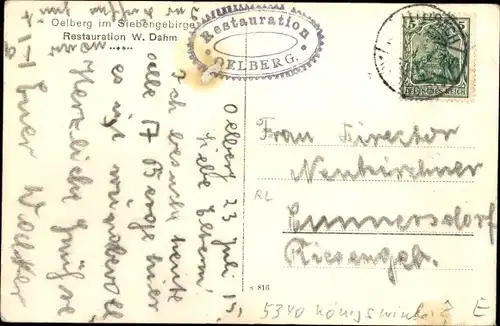 Oelberg im Siebengebirge
Restauration W. Dahm
Restauration
OELBERG.
DEUTSCHES REICH
Oelberg 23 Juli 15,
Liebe Eltern!
Ich besuche heute
alle 7 Berge hier
es ist wundervoll
Herzliche Grüsse
Euer Walther
Frau Direktor
Neukirchner
Cunnersdorf
Riesengeb.
RL
s 816
5340 Königswinter
E